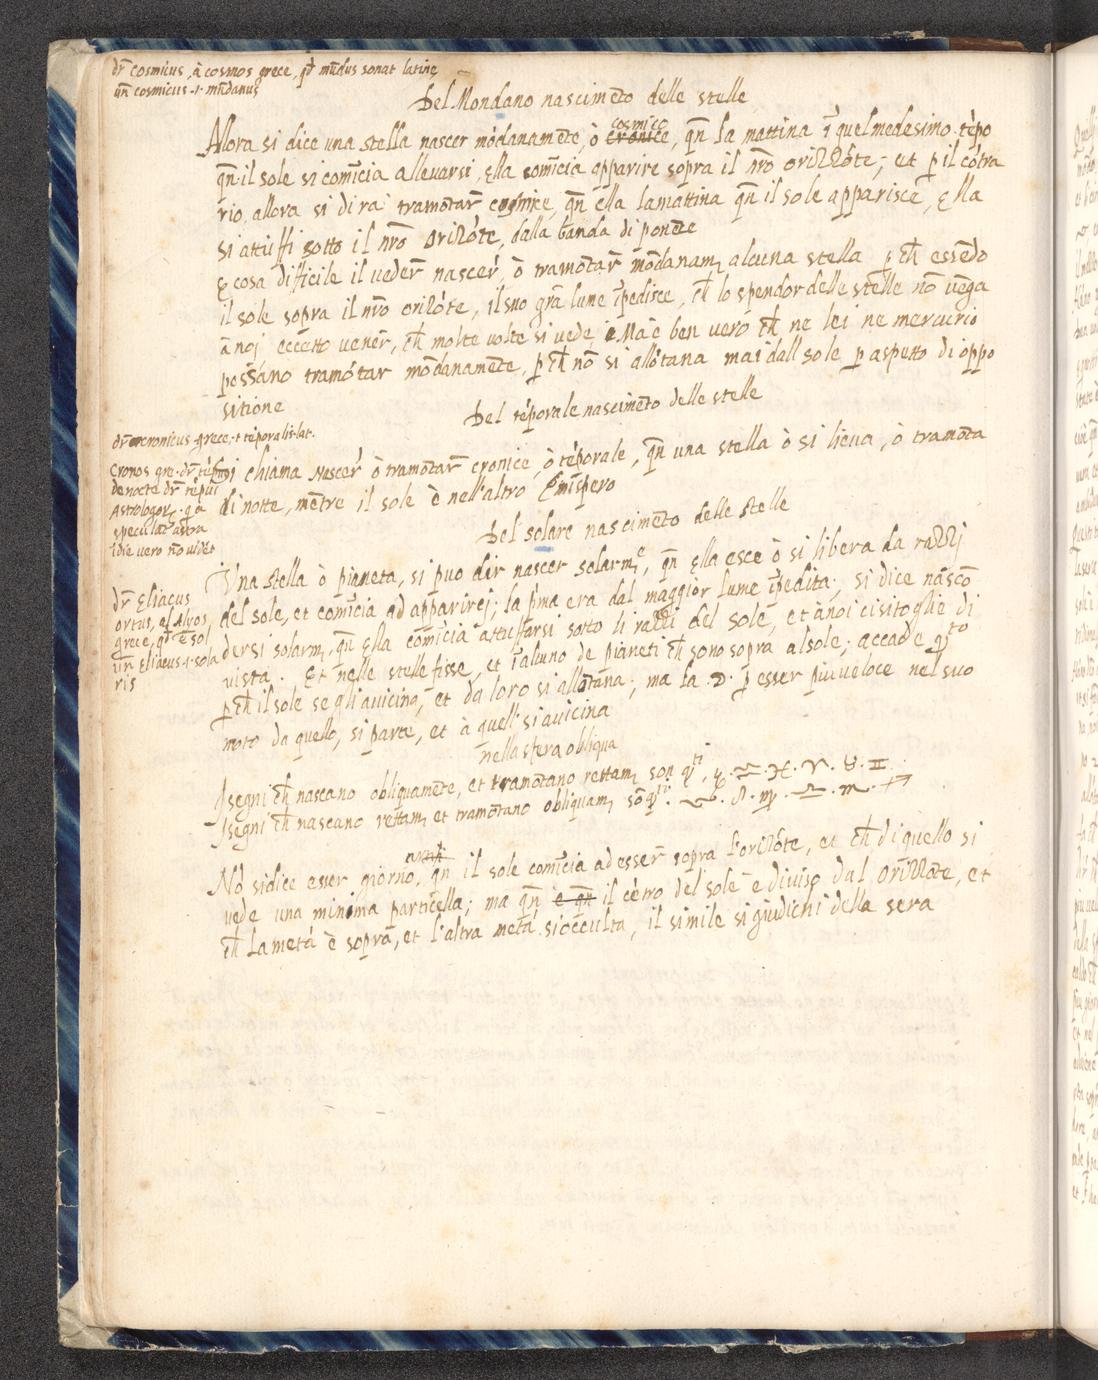 dr̄ cosmicus, à cosmos grece, qd̄ mūdus sonat latine
un̄ cosmicus .i. mūdanus
Del Mondano nascimēto delle stelle
Allora si dice una stella nascer mōdanamēte, ò cronice cosmice, qn̄ la mattina ī quel medesimo tēpo
qn̄ il sole si comīcia allevarsi, ella comīcia apparire sopra il nr̄o orizzōte; et p il cōtra
rio, allora si dira tramōtar̄ cosmice, qn̄ ella la mattina qn̄ il sole apparisce, ella
si attuffi sotto il nr̄o orizōte, dalla banda di ponēte
È cosa difficile il ueder̄ nascer, ò tramōtar̄ mōdanam, alcuna stella pch̄ essēdo
il sole sopra il nr̄o orizōte, il suo grā lume īpedisce, ch̄ lo spendor delle stelle nō uēga
à noj eccetto vener̄, ch̄ molte volte si vede, Ma è ben vero ch̄ ne lei ne mercurio
possano tramōtar mōdanamēte, p ch̄ nō si allōtana mai dall sole p aspetto di oppo
sitione
Del tēporale nascimēto delle stelle
dr̄ cronicus grece .i. tēporalis lat.
Cronos gre. dr̄ tēpus
de nocte dr̄ tēpus
Astrologor, qa
speculāt astra
I die vero nō uidēt
Si chiama Nascer ò tramōtar̄ cronice, ò tēporale, qn̄ una stella ò si lieva, ò tramōta
di notte, mētre il sole è nell'altro Emispero
Del solare nascimēto delle stelle
dr̄ Eliacus
ortus, ab Alyos
grece, qd̄ ē sol
un̄ eliacus .i. sola
ris
Vna stella ò pianeta, si puo dir nascer solarme, qn̄ ella esce ò si libera da razzi
del sole, et comīcia ad apparirej; la pma era dal maggior lume īpedita; si dice nascō
dersi solarm, qn̄ ella comīcia attuffarsi sotto li razzi del sole, et à noi ci si toglie di
vista. Et nelle stelle fisse, et ī alcuno de pianeti ch̄ sono sopra al sole; accade qsto
p ch̄ il sole se gli avicina, et da loro si allōtana; ma la .D. p esser piu veloce nel suo
moto da quello, si parte, et à quell' si avicina
nella sfera obliqua
I segni ch̄ nascano obliquamēte, et tramōtano rettam, son qsti, ♑ . ♒ . ♓ . ♈ . ♉ . ♊
I segni ch̄ nascano rettam, et tramōtano obliquam, sō qsti. ♋ . ♌ . ♍ . ♎ . ♏ . ♐
Nō si dice esser giorno, qn̄ il sole comīcia ad esser̄ sopra l'orizōte, et ch̄ di quello si
vede una minima particella; ma qn̄ è qn̄ il cētro del sole è diviso dal orizzōte, et
ch̄ la metà è sopra, et l'altra metà si occulta, il simile si giudichi della sera